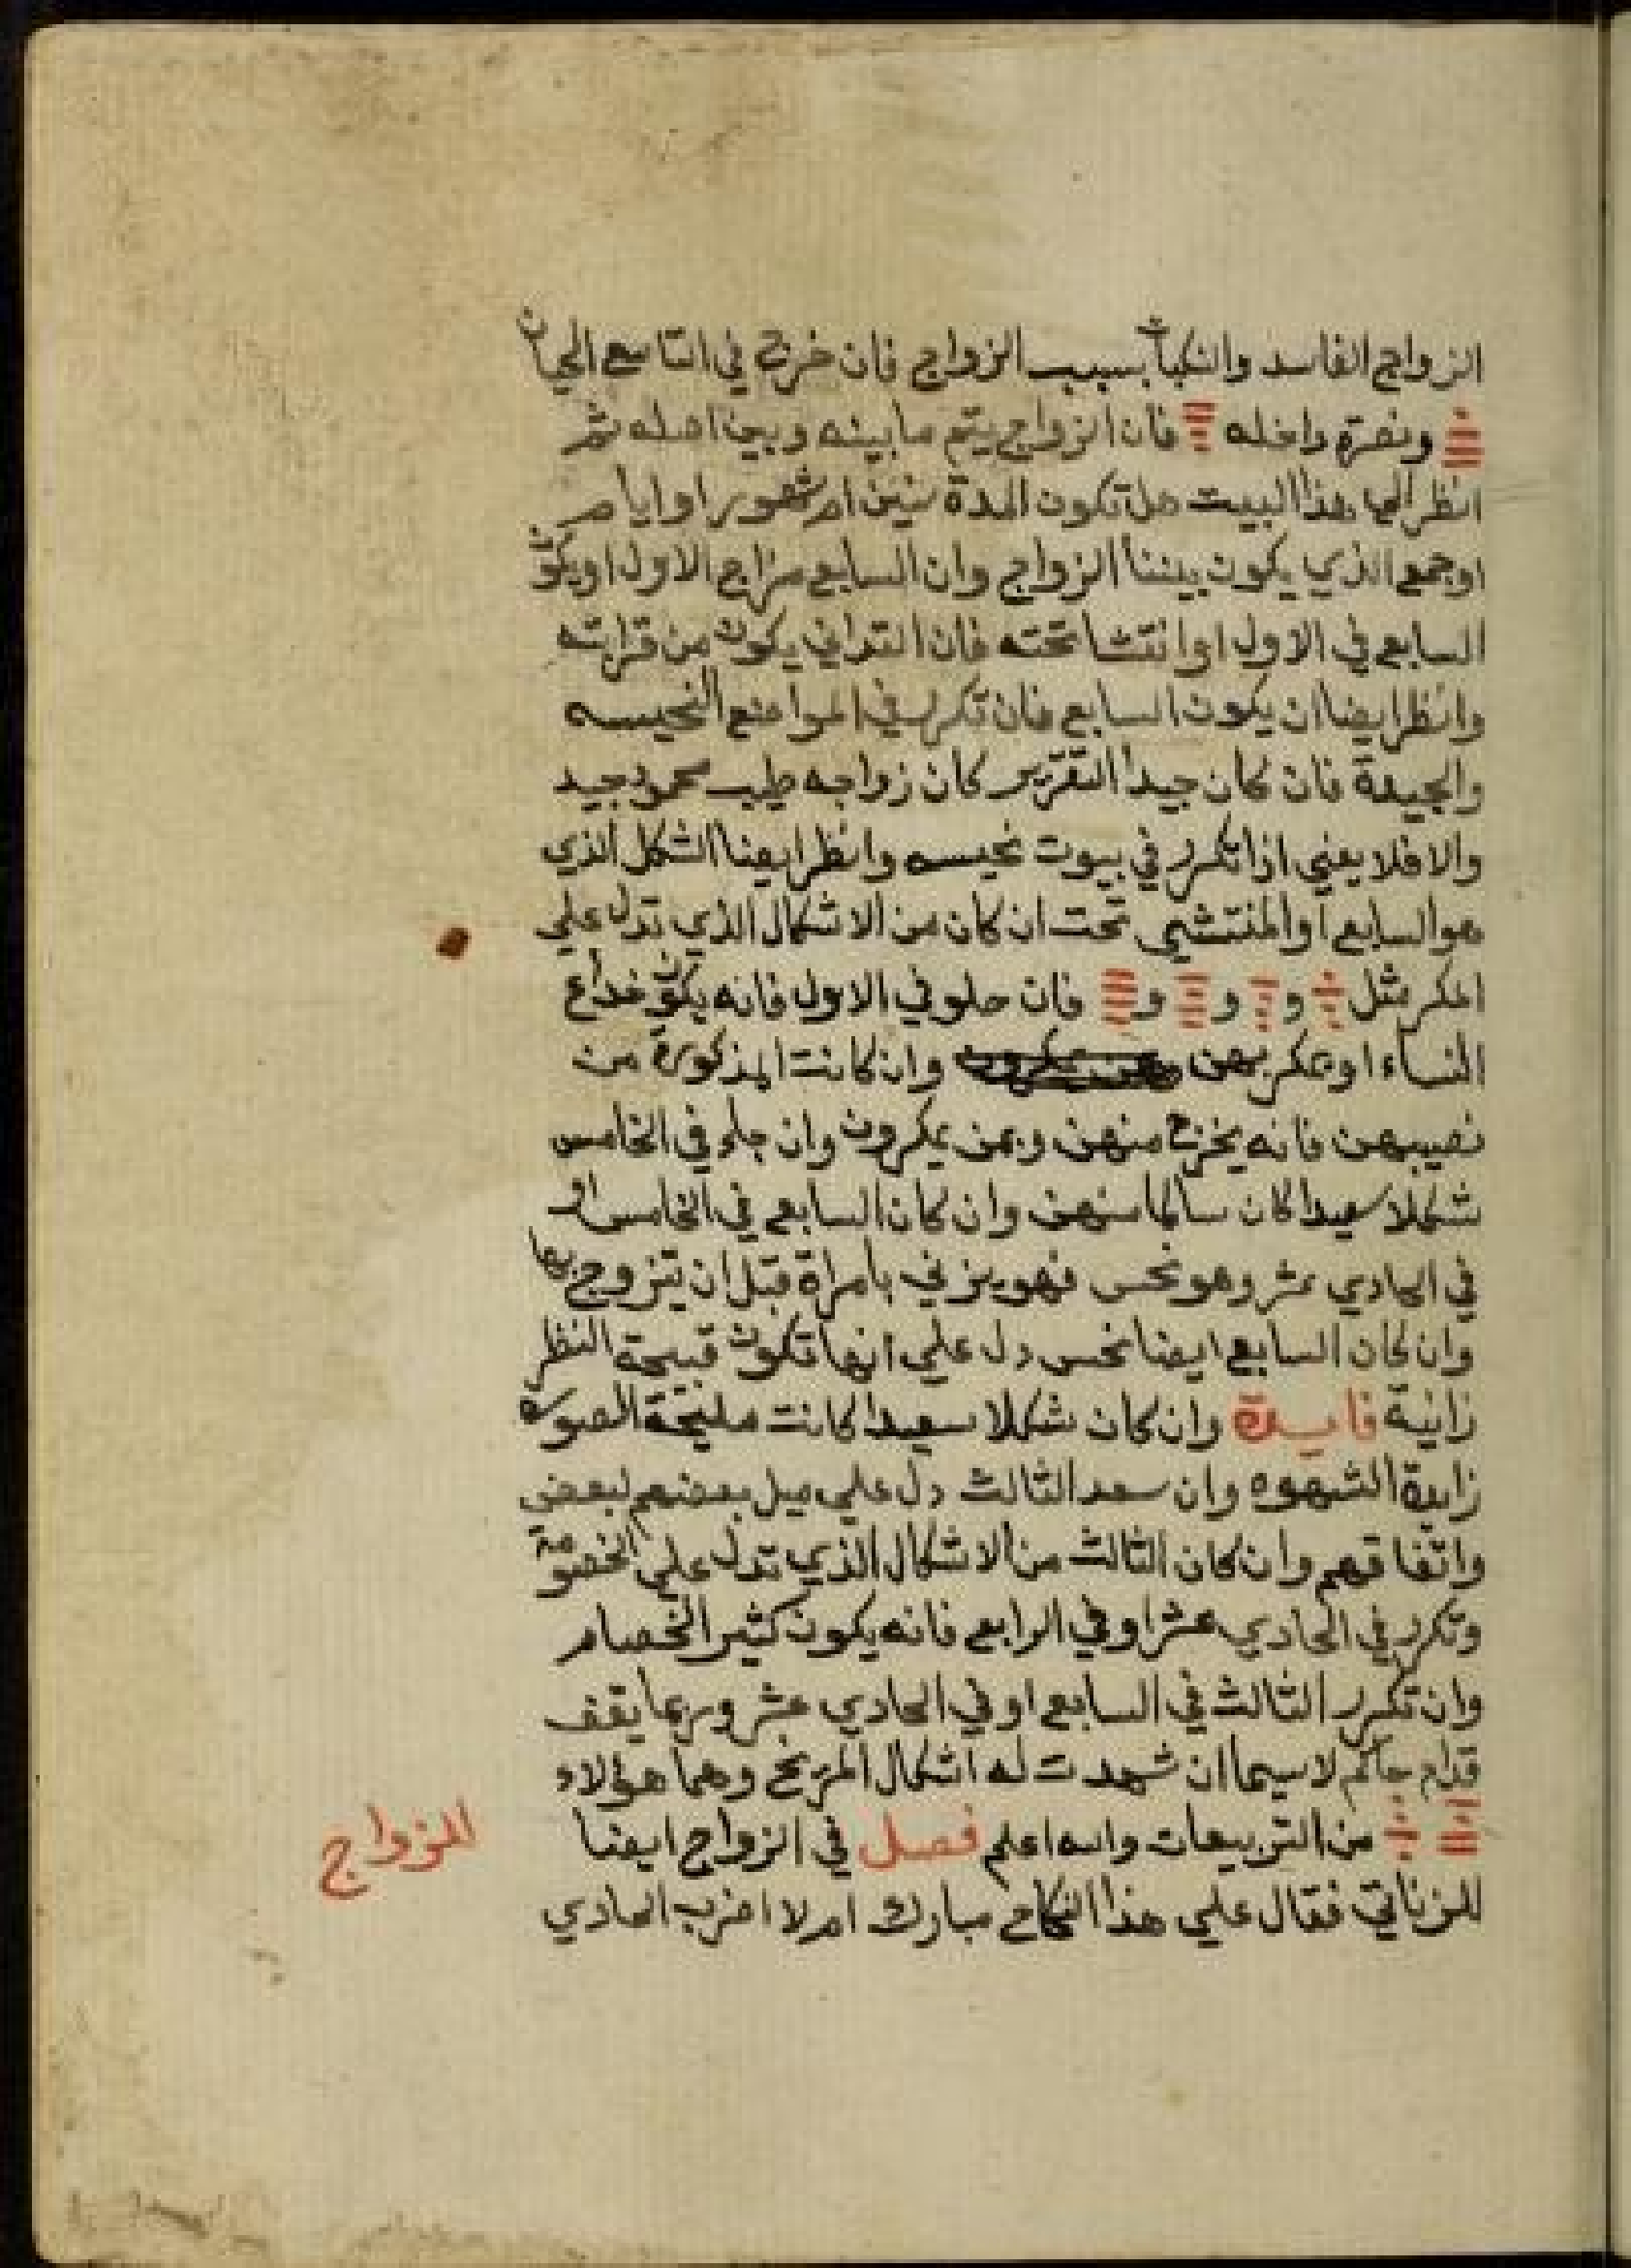 الزواج الفاسد والنكبات بسبب الزواج فان خرج في التاسع الحيان
ونصرة داخله فان الزواج يتم ما بينه وبين اهله ثم
انظر الى هذا البيت هل تكون المدة سنين ام شهور او ايام
او جمع الذي يكون بيننا الزواج وان السابع مزاج الاول او يكون
السابع في الاول او انتشا تحته فان التداني يكون من قرابته
وانظر ايضا ان يكون السابع فان تكرر في المواضع النحيسه
والجيدة فان كان جيد التقرير كان زواجه طيب محمود جيد
والا فلا يعني اذا تكرر في بيوت نحيسه وانظر ايضا الشكل الذي
هو السابع او المنتشي تحت ان كان من الاشكال الذي تدل علي
المكر مثل و و و فان حلو في الاول فانه يكون خداع
النساء او يمكر بهن وان كانت المذكورة من
نصيبهن فانه يخرج منهن وبمن يمكرون وان جاء في الخامس
شكلا سعيدا كان سالما منهن وان كان السابع في الخامس او
في الحادي عشر وهو نحس فهو يزني بامراة قبل ان يتزوج بها
وان كان السابع ايضا نحس دل علي انها تكون قبيحة النظر
زانية فايدة وان كان شكلا سعيدا كانت مليحة الصوره
زايدة الشهوه وان سعد الثالث دل علي ميل بعضهم لبعض
واتفاقهم وان كان الثالث من الاشكال الذي تدل علي الخصومة
وتكرر في الحادي عشر او في الرابع فانه يكون كثير الخصام
وان تكرر الثالث في السابع او في الحادي عشر وربما يقف
قدام حاكم لا سيما ان شهدت له اشكال المريخ وهما هؤلاء
من التربيعات والله اعلم فصل في الزواج ايضا
الزواج
للزناتي فقال علي هذا النكاح مبارك ام لا اضرب الحادي